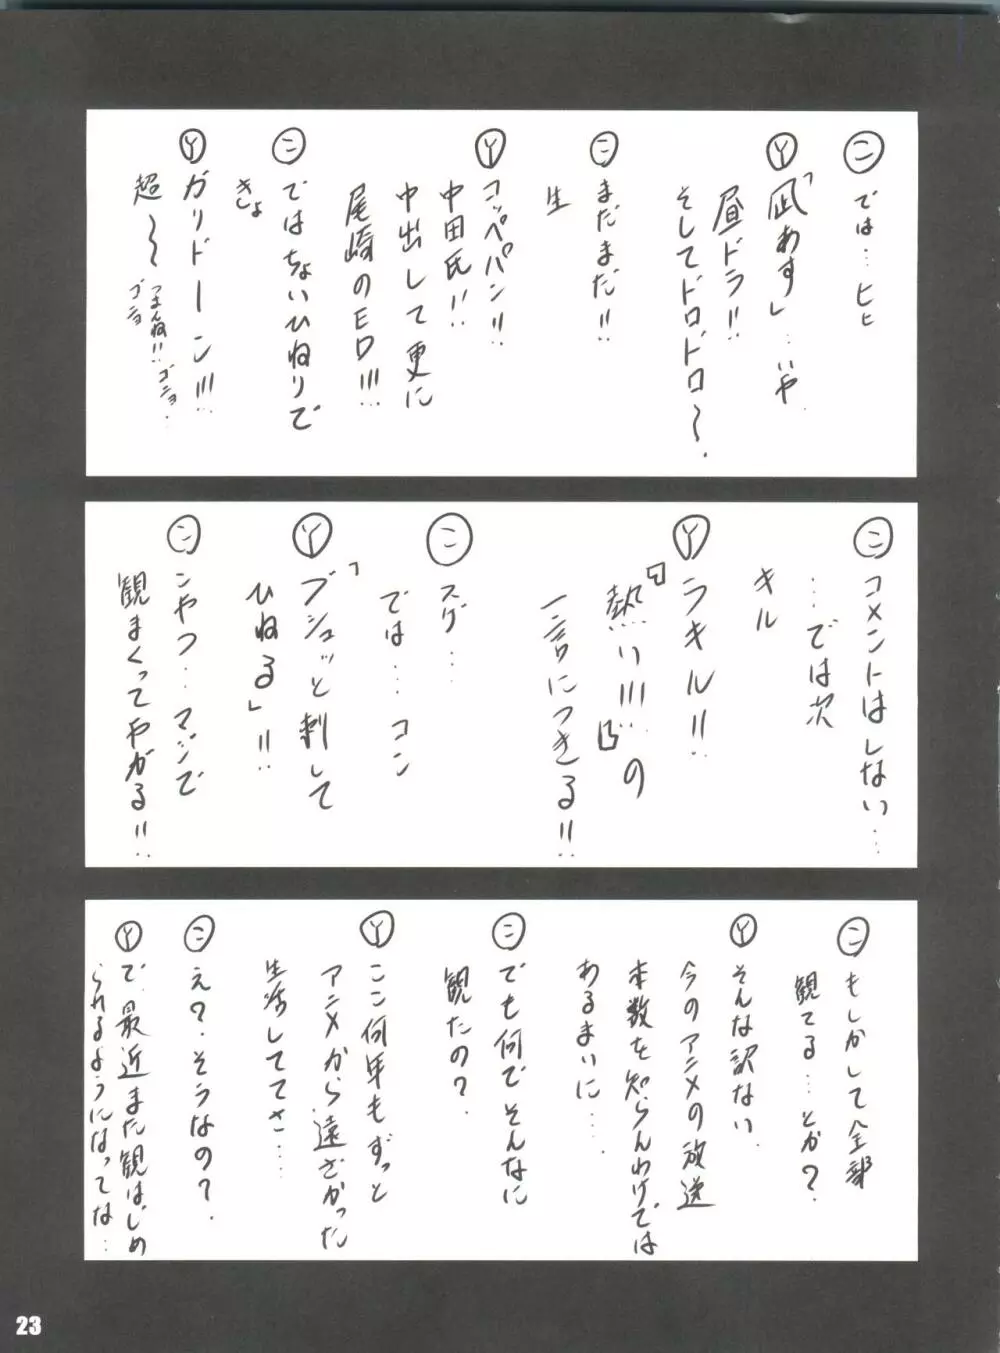 ㊁では…ヒヒ
Ⓨ「凪あす」…いや
昼ドラ!!
そしてドロドロ〜.
㊁まだまだ!!
生
Ⓨコッペパン!!
中田氏!!
中出して更に
尾崎のED!!!
㊁ではちょいひねりで
きしょ
Ⓨガリドーン!!!
超〜〜つまんね!!ゴニョ..
ゴニョ
㊁コメントはしない…
…では次
キル
Ⓨラキル!!
『熱い!!!』の
一言につきる!!
㊁スゲ…
では…コン
Ⓨ「ブシュッと刺して
ひねる」!!
㊁こやつ…マジで
観まくってやがる!!
㊁もしかして全部
観てる…とか?
Ⓨそんな訳ない.
今のアニメの放送
本数を知らんわけでは
あるまいに…
㊁でも何でそんなに
観たの?
Ⓨここ何年もずっと
アニメから遠ざかった
生活しててさ…
㊁え?そうなの?
Ⓨで.最近また観はじめ
られるようになってな…
23